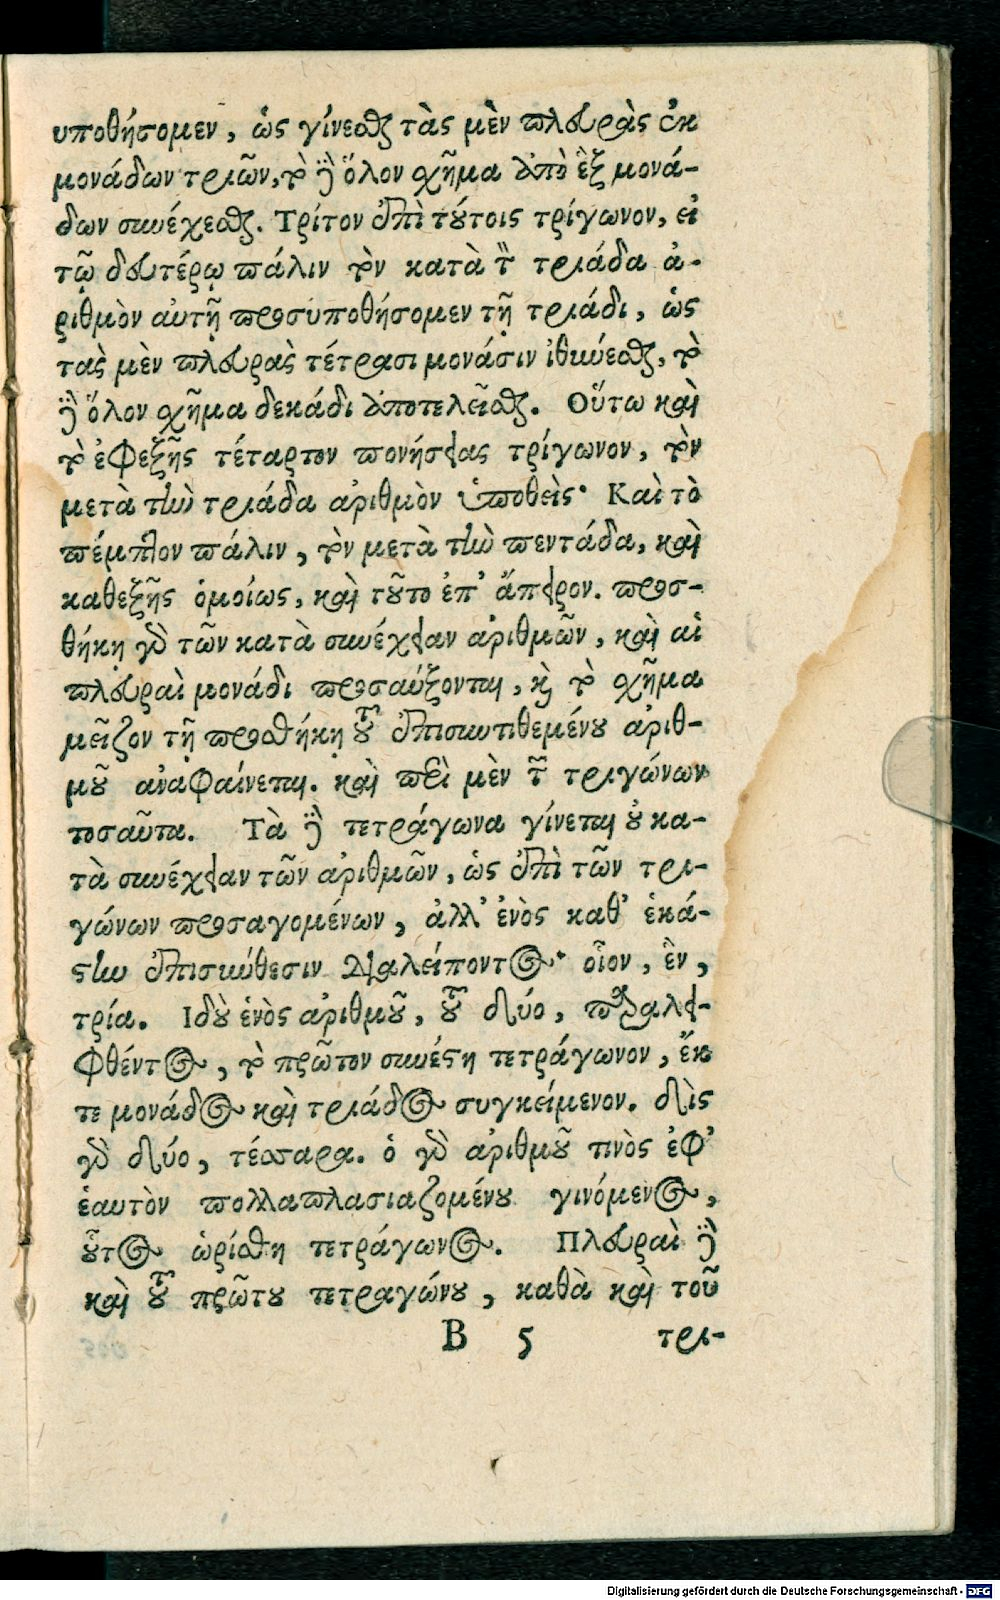 υποθήσομεν, ὡς γίνεσθαι τὰς μὲν πλευρὰς ἐκ
μονάδων τριῶν, τὸ δὲ ὅλον σχῆμα ἀπὸ ἓξ μονά-
δων συνέχεσθαι. Τρίτον ἐπὶ τούτοις τρίγωνον, εἰ
τῷ δευτέρῳ πάλιν τὸν κατὰ τὴν τριάδα ἀ-
ριθμὸν αὐτῇ προσϋποθήσομεν τῇ τριάδι, ὡς
τὰς μὲν πλευρὰς τέτρασι μονάσιν ἰθύνεσθαι, τὸ
δὲ ὅλον σχῆμα δεκάδι ἀποτελεῖσθαι. Οὕτω καὶ
τὸ ἐφεξῆς τέταρτον πονήσειας τρίγωνον, τὸν
μετὰ τὴν τριάδα ἀριθμὸν ὑποθείς· Καὶ τὸ
πέμπτον πάλιν, τὸν μετὰ τὴν πεντάδα, καὶ
καθεξῆς ὁμοίως, καὶ τοῦτο ἐπ' ἄπειρον. προσ-
θήκῃ γὰρ τῶν κατὰ συνέχειαν ἀριθμῶν, καὶ αἱ
πλευραὶ μονάδι προσαύξονται, καὶ τὸ σχῆμα
μεῖζον τῇ προσθήκῃ τοῦ ἐπισυντιθεμένου ἀριθ-
μοῦ ἀναφαίνεται. καὶ περὶ μὲν τῶν τριγώνων
τοσαῦτα. Τὰ δὲ τετράγωνα γίνεται οὐ κα-
τὰ συνέχειαν τῶν ἀριθμῶν, ὡς ἐπὶ τῶν τρι-
γώνων προσαγομένων, ἀλλ' ἑνὸς καθ' ἑκά-
στην ἐπισύνθεσιν διαλείποντος· οἷον, ἓν,
τρία. Ἰδοὺ ἑνὸς ἀριθμοῦ, τοῦ δύο, παραλει-
φθέντος, τὸ πρῶτον συνέστη τετράγωνον, ἔκ
τε μονάδος καὶ τριάδος συγκείμενον. δὶς
γὰρ δύο, τέσσαρα. ὁ γὰρ ἀριθμοῦ τινὸς ἐφ'
ἑαυτὸν πολλαπλασιαζομένου γινόμενος,
οὗτος ὡρίσθη τετράγωνος. Πλευραὶ δὲ
καὶ τοῦ πρώτου τετραγώνου, καθὰ καὶ τοῦ
B 5 τρι-
Digitalisierung gefördert durch die Deutsche Forschungsgemeinschaft - DFG